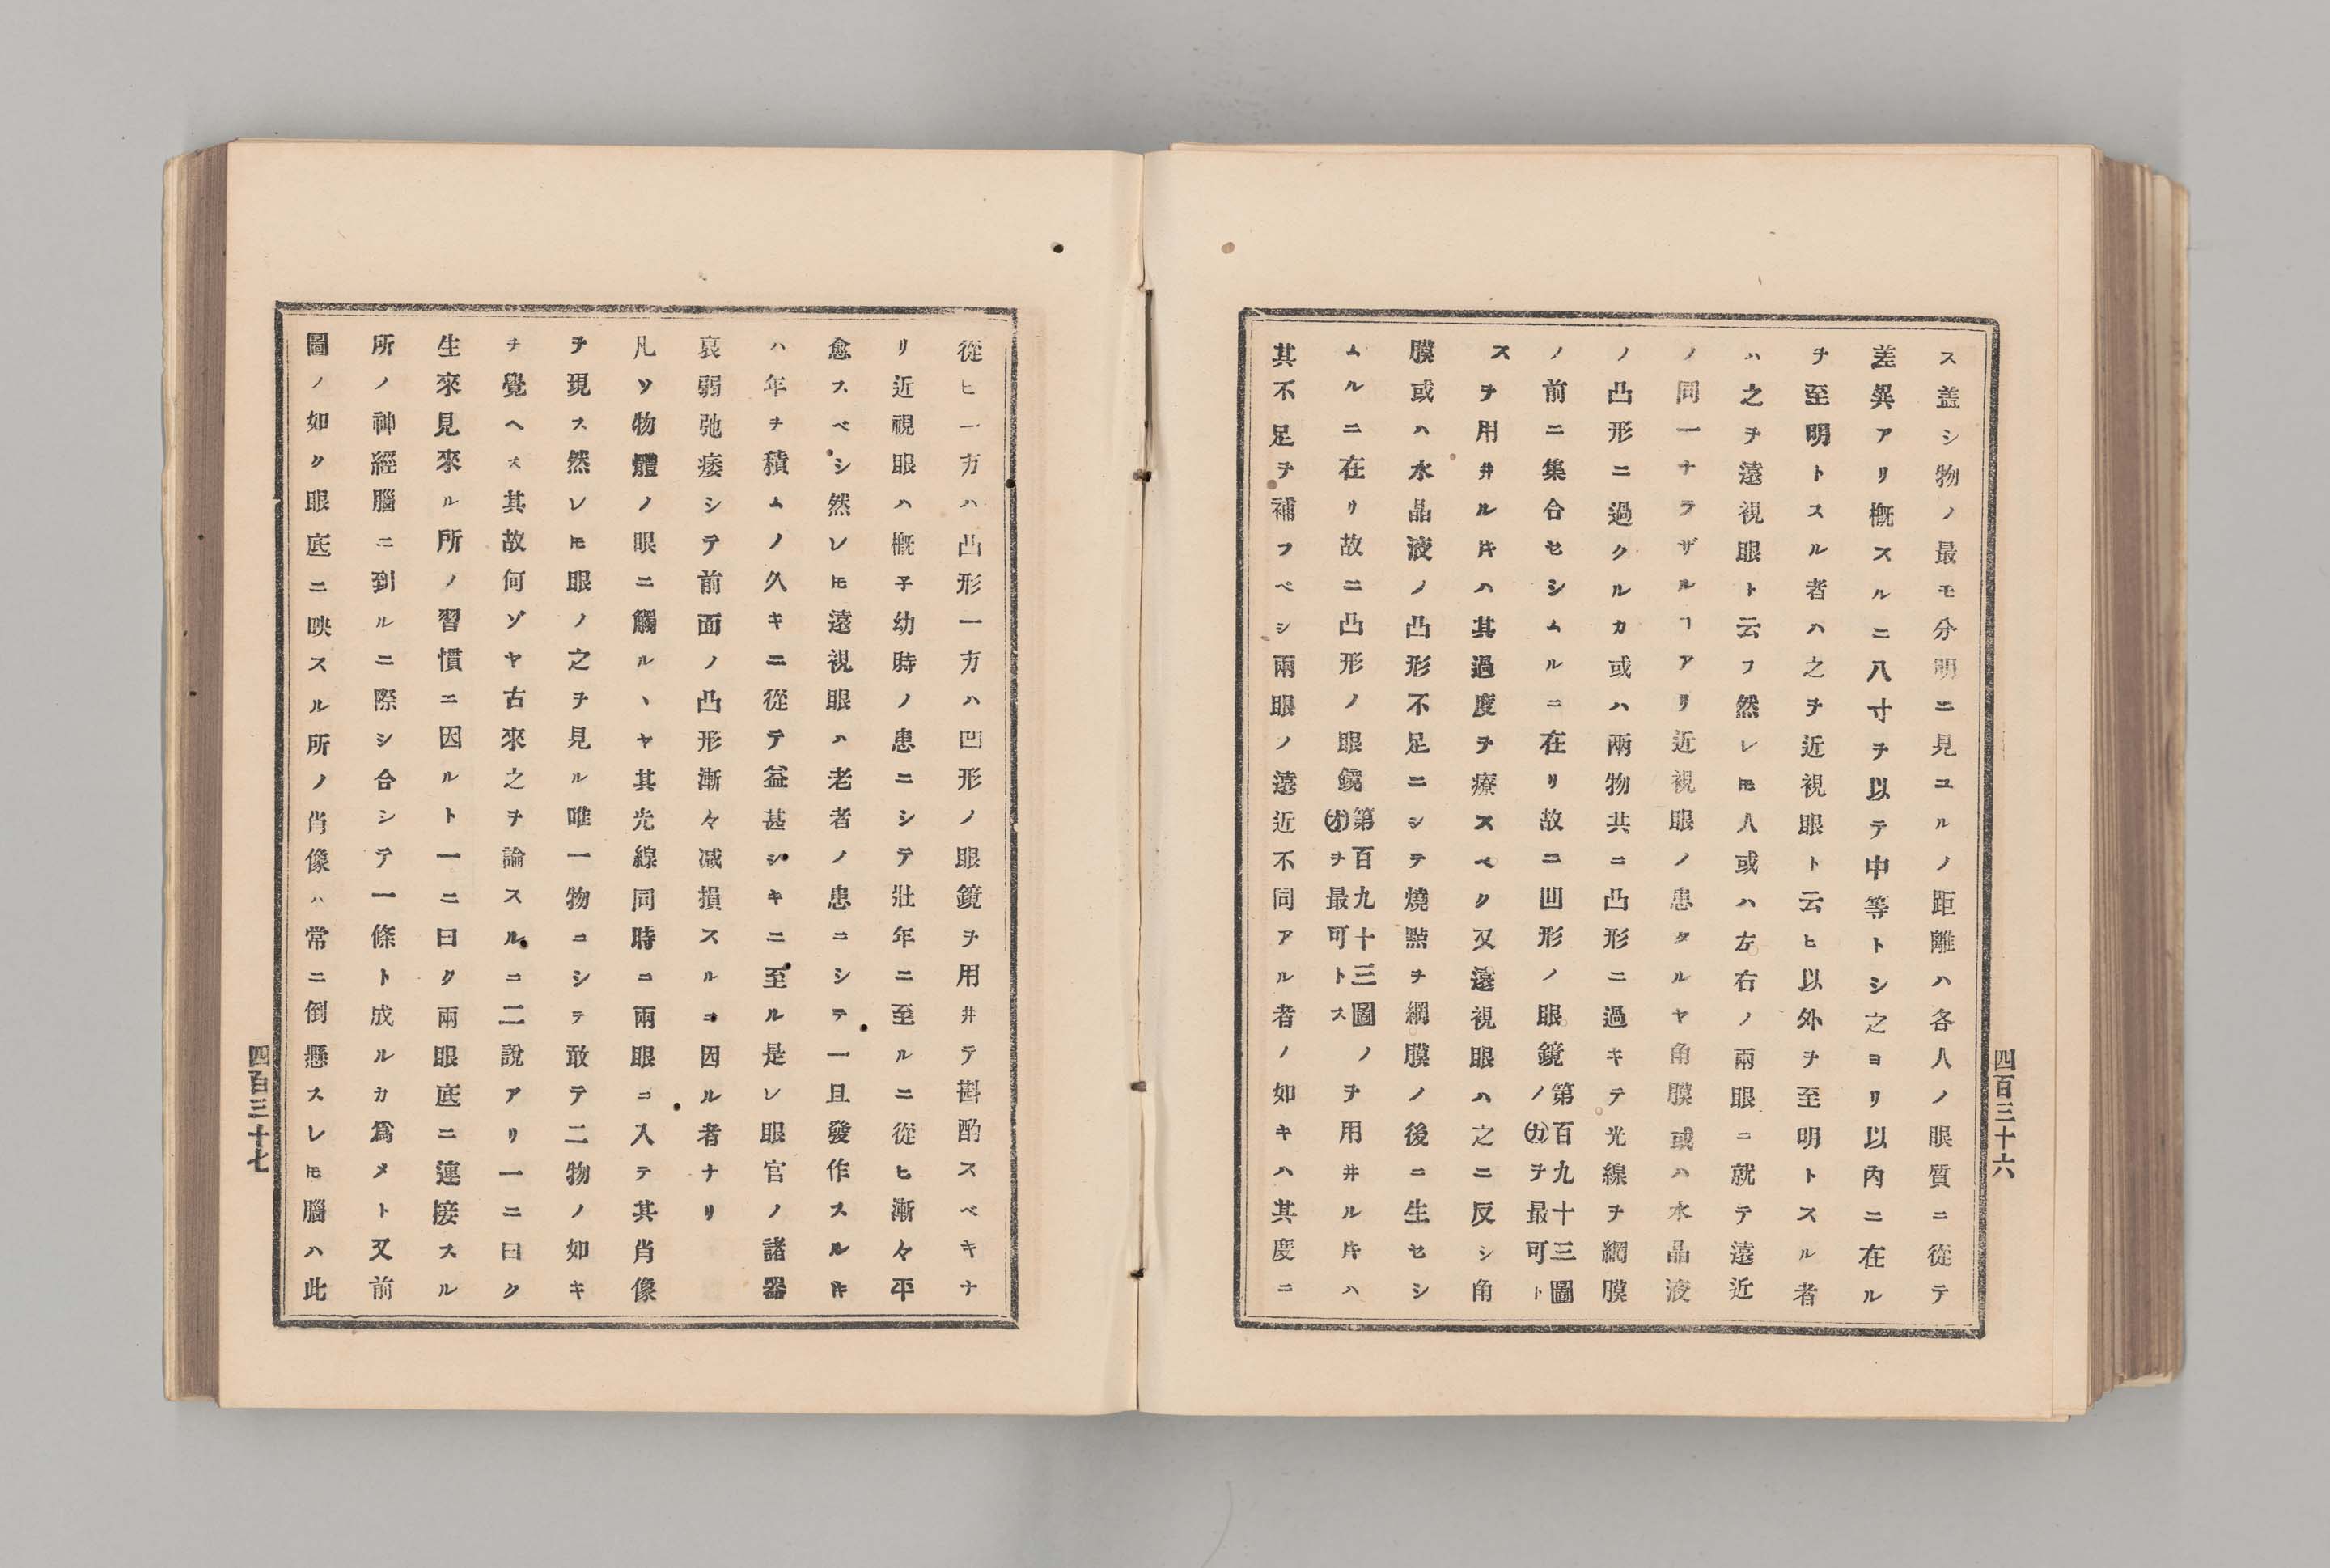 ス盖シ物ノ最モ分明ニ見ユルノ距離ハ各人ノ眼質ニ從テ
差異アリ槪スルニ八寸ヲ以テ中等トシ之ヨリ以内ニ在ル
ヲ至明トスル者ハ之ヲ近視眼ト云ヒ以外ヲ至明トスル者
ハ之ヲ遠視眼ト云フ然レ𪜈人或ハ左右ノ兩眼ニ就テ遠近
ノ同一ナラザルヿアリ近視眼ノ患タルヤ角膜或ハ水晶液
ノ凸形ニ過クルカ或ハ兩物共ニ凸形ニ過キテ光線ヲ網膜
ノ前ニ集合セシムルニ在リ故ニ凹形ノ眼鏡第百九十三圖ノ㋕ヲ最可ト
スヲ用井ル𪜈ハ其過度ヲ療スベク又遠視眼ハ之ニ反シ角
膜或ハ水晶液ノ凸形不足ニシテ燒點ヲ網膜ノ後ニ生セシ
ムルニ在リ故ニ凸形ノ眼鏡第百九十三圖ノ㋔ヲ最可トスヲ用井ル𪜈ハ
其不足ヲ補フベシ兩眼ノ遠近不同アル者ノ如キハ其度ニ
四百三十六
從ヒ一方ハ凸形一方ハ凹形ノ眼鏡ヲ用井テ斟酌スベキナ
リ近視眼ハ槪子幼時ノ患ニシテ壯年ニ至ルニ從ヒ漸々平
愈スベシ然レ𪜈遠視眼ハ老者ノ患ニシテ一旦發作スル𪜈
ハ年ヲ積ムノ久キニ從テ益甚シキニ至ル是レ眼官ノ諸器
衰弱弛痿シテ前面ノ凸形漸々減損スルニ因ル者ナリ
凡ソ物體ノ眼ニ觸ルヽヤ其光線同時ニ兩眼ニ入テ其肖像
ヲ現ス然レ𪜈眼ノ之ヲ見ル唯一物ニシテ敢テ二物ノ如キ
ヲ覺ヘス其故何ゾヤ古來之ヲ論スルニ二說アリ一ニ曰ク
生來見來ル所ノ習慣ニ因ルト一ニ曰ク兩眼底ニ連接スル
所ノ神經腦ニ到ルニ際シ合シテ一條ト成ルカ爲メト又前
圖ノ如ク眼底ニ映スル所ノ肖像ハ常ニ倒懸スレ𪜈腦ハ此
四百三十七